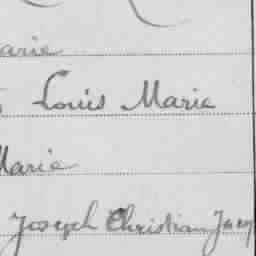 arie
Louis Marie
Marie
Joseph Christian Jacq